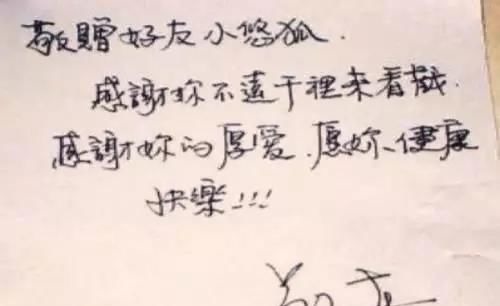 敬贈好友小悠狐.
感謝妳不遠千裡来看戲.
感謝妳的厚爱.愿妳健康
快樂!!!